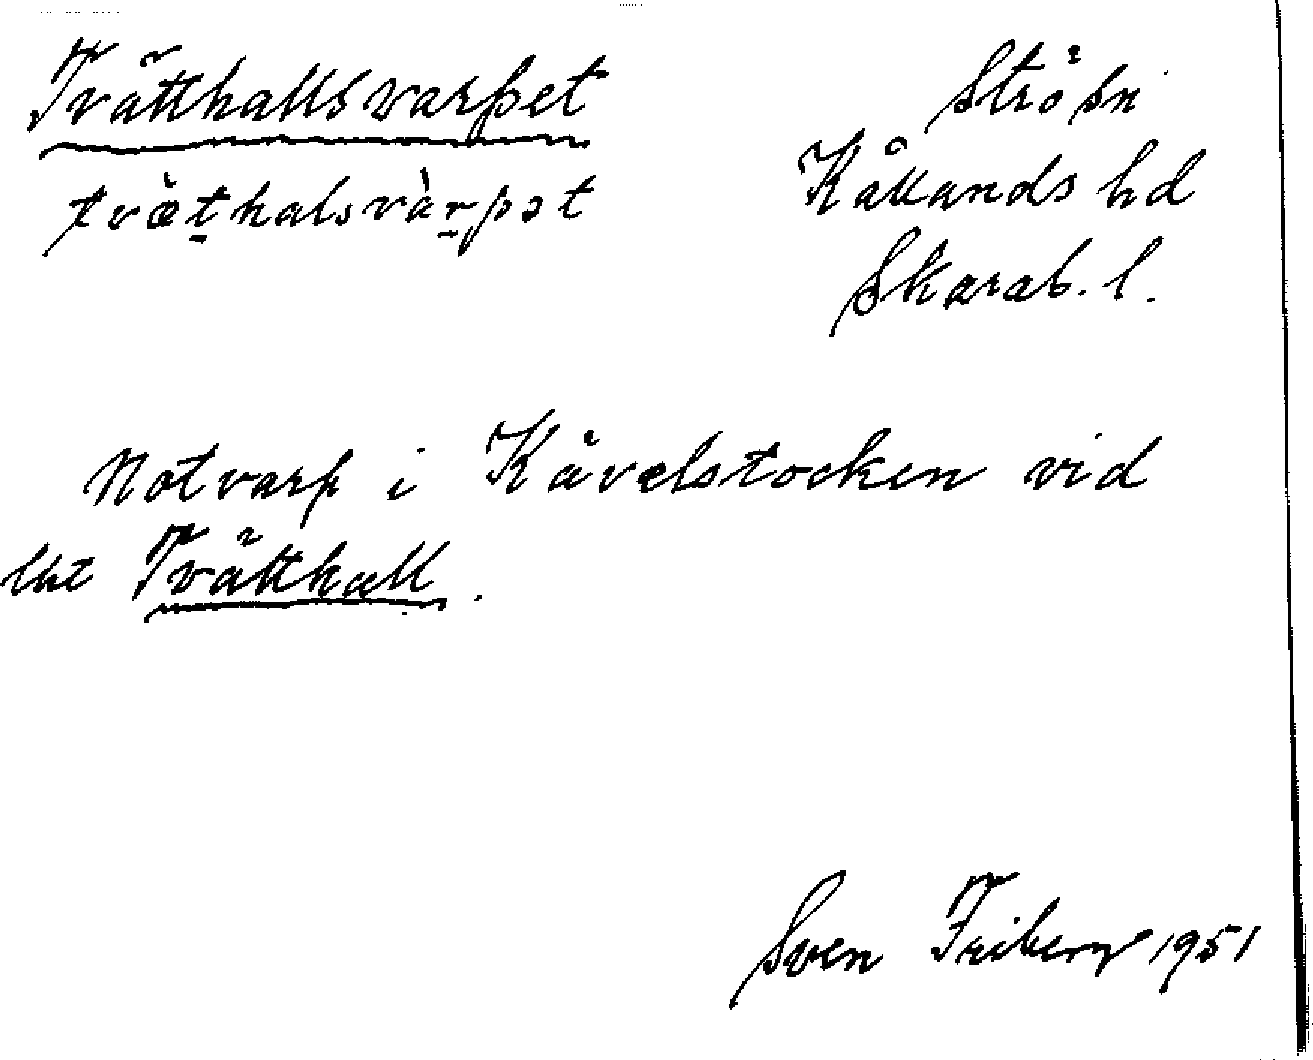 Tvätthallsvarpet
Strö sn
tvæ̀t̠halsvàr̠pət
Kållands hd
Skarab. l.
Notvarp i Kävelstocken vid
Tvätthall.
Sven Friberg 1951